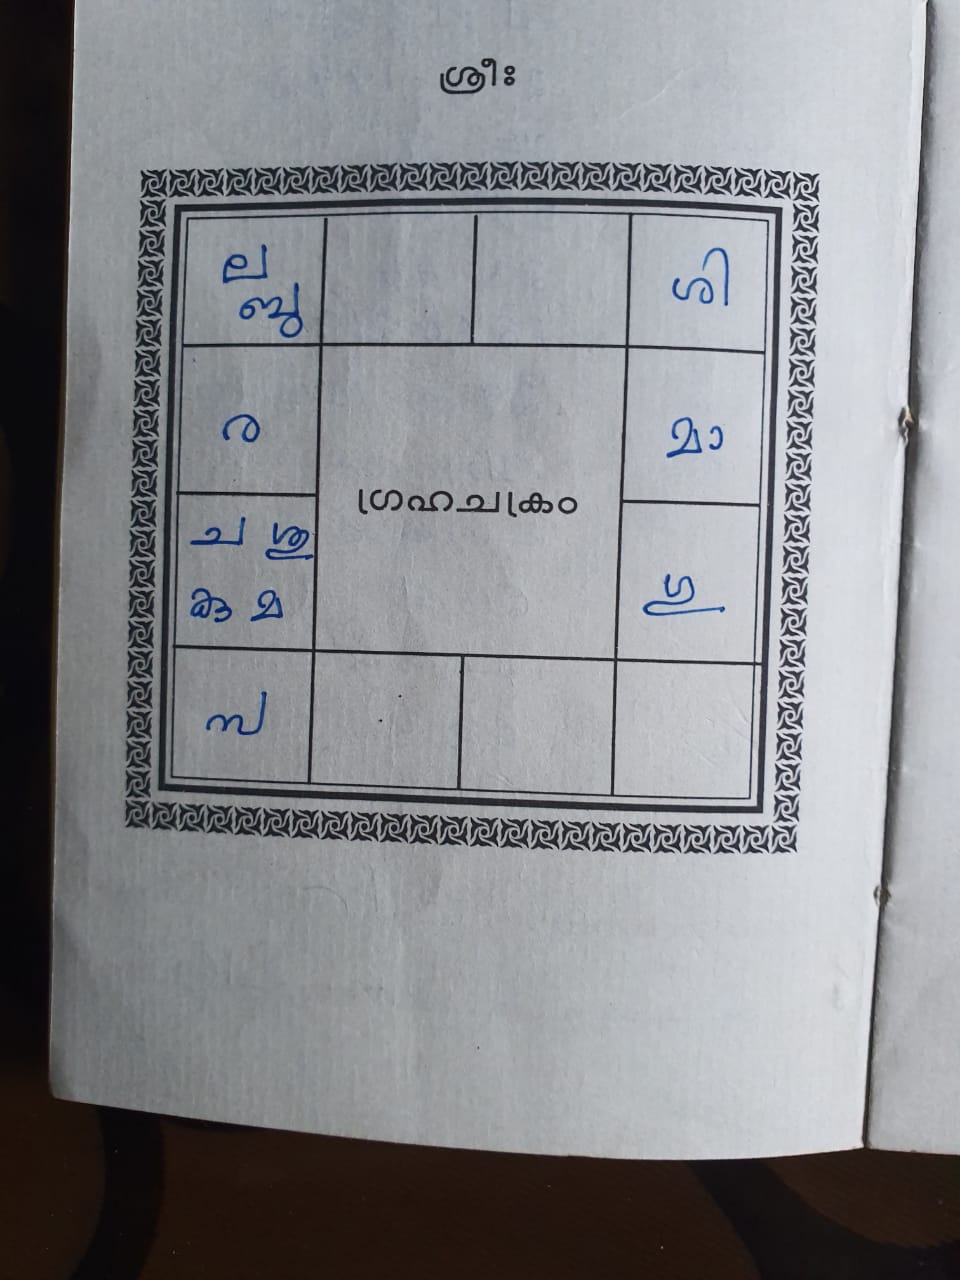 ശ്രീഃ
ല
ബു
ശി
ര
മാ
ഗ്രഹചക്രം
ച ശു
കു മ
ഗു
സ